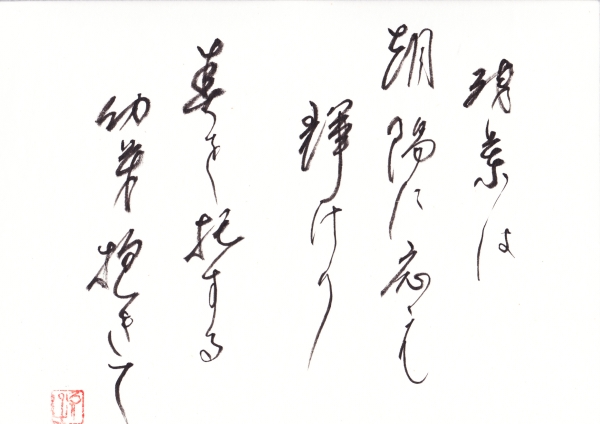 残葉は
朝陽に応え
輝けり
春を托する
幼芽抱きて